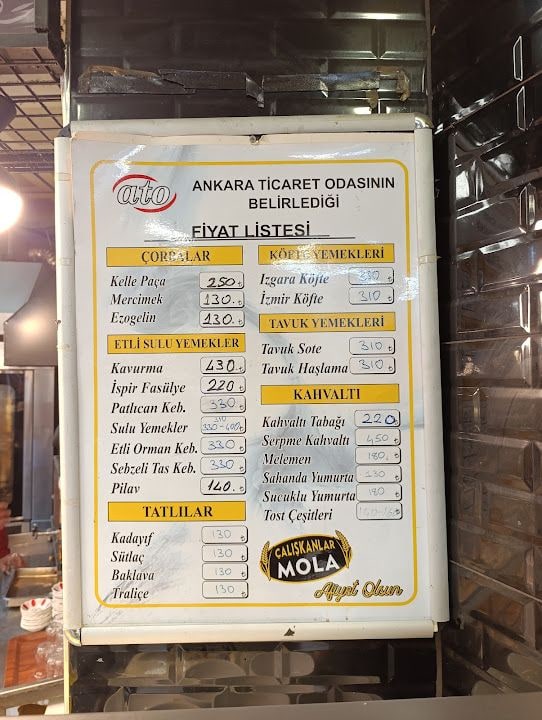 ato
ANKARA TİCARET ODASININ
BELİRLEDİĞİ
FİYAT LİSTESİ
ÇORBALAR
Kelle Paça 250 ₺
Mercimek 130. ₺
Ezogelin 130. ₺
ETLİ SULU YEMEKLER
Kavurma 430 ₺
İspir Fasülye 220 ₺
Patlıcan Keb. 330 ₺
Sulu Yemekler 310 330-400 ₺
Etli Orman Keb. 330 ₺
Sebzeli Tas Keb. 330 ₺
Pilav 140. ₺
TATLILAR
Kadayıf 130 ₺
Sütlaç 130 ₺
Baklava 130 ₺
Traliçe 130 ₺
KÖFTE YEMEKLERİ
Izgara Köfte 330 ₺
İzmir Köfte 310 ₺
TAVUK YEMEKLERİ
Tavuk Sote 310 ₺
Tavuk Haşlama 310 ₺
KAHVALTI
Kahvaltı Tabağı 220 ₺
Serpme Kahvaltı 450 ₺
Melemen 180. ₺
Sahanda Yumurta 130 ₺
Sucuklu Yumurta 180 ₺
Tost Çeşitleri
ÇALIŞKANLAR
MOLA
Afiyet Olsun